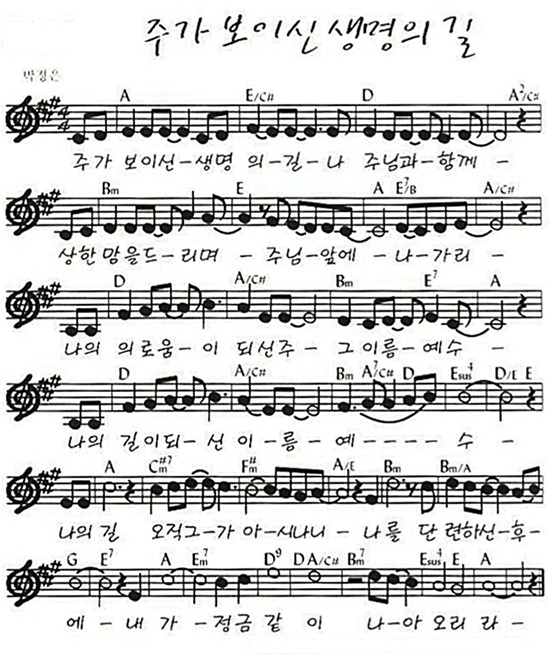 주가 보이신 생명의 길
박정은
4/4
A E/C# D A²/C#
주가 보이신-생명 의-길-나 주님과-함께 -
Bm E A E⁷/B A/C#
상한 맘을드-리며 - 주님-앞에 - 나-가리 -
D A/C# Bm E⁷ A
나의 의로움-이 되신주 - 그 이름-예수 -
D A/C# Bm A⁷/C# D Esus⁴ D/E E
나의 길이되-신 이-름-예---- 수 -
A C#m⁷ F#m A/E Bm Bm/A
나의 길 오직그-가 아-시나니 - 나를 단 련하신-후-
G E⁷ A Em⁷ D⁹ D A/C# Bm⁷ Esus⁴ E A
에-내 가 -정금 같 이 나-아 오리 라-